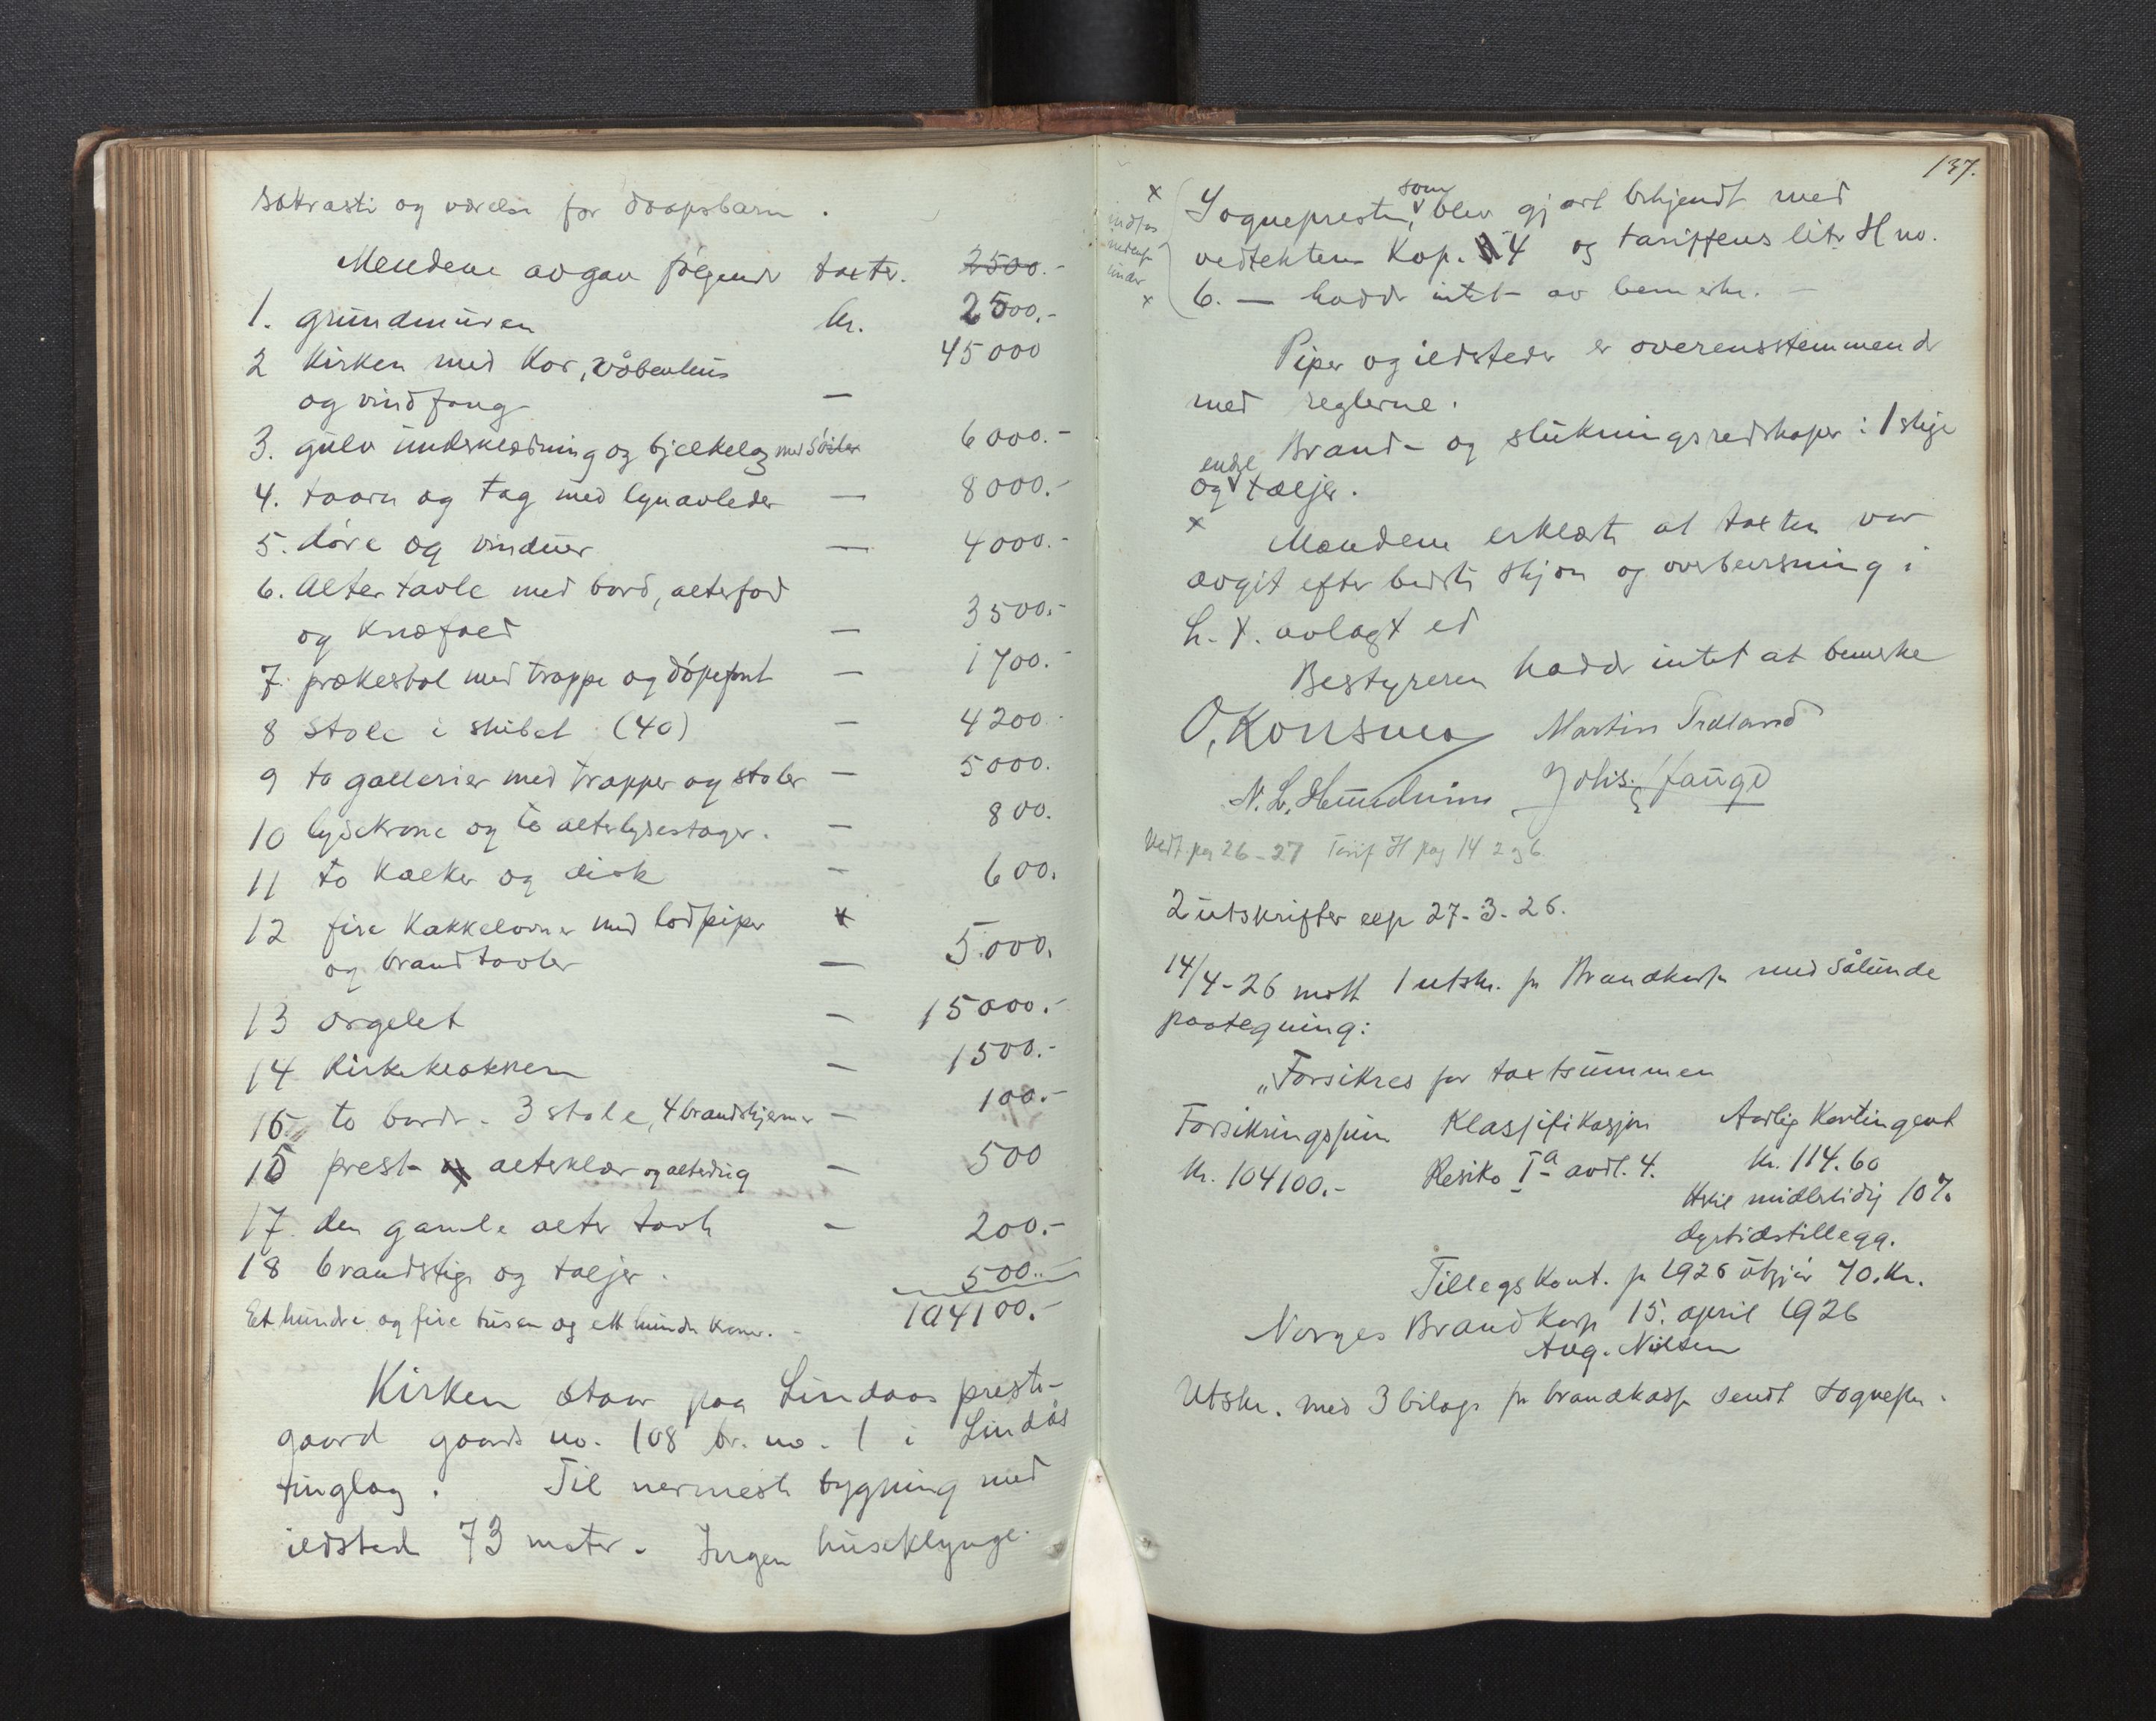 sakrasti og værelse for daapsbarn.
Mendene avgav følgende taxter. 2500.-
1. grundmuren kr. 2500.-
2 Kirken med Kor, våbenhus 45000
og vindfang —
3. gulv underklædning og bjelkelag med søiler 6000.-
4. taarn og tag med lynavleder — 8000.-
5. døre og vinduer — 4000.-
6. Altertavle med bord, alterfod
og knæfald — 3500.-
7. prækestol med trappe og døpefont — 1700.-
8 stole i skibet (40) — 4200.-
9 to gallerier med trapper og stoler — 5000.
10 lysekrone og to alterlysestager. — 800.
11 to kalker og disk — 600.
12 fire kakkelovner med lodpiper
og brandtavler — 5.000.
13 orgelet — 15000.-
14 Kirkeklokken — 1500.-
15 to bord. 3 stole, 4 brandskjermer — 100.-
16 prest- og alterklær og alterdug — 500
17. den gamle alter tavle — 200.-
18 brandstige og taljer. 500.-
104100.-
Et hundre og fire tusen og ett hundre kroner. -
Kirken staar paa Lindaas preste-
gaard gaards no. 108 br. no. 1 i Lindås
tinglag. Til nermeste bygning med
ildsted 73 meter. Ingen huseklynge.
137.
x
som
Sognepresten, blev gjort bekjendt med
vedtektens Kap. 4 og tariffens litr. H no.
6. — hadde intet av bemerke. —
x
Piper og ildsteder er overensstemmende
med reglerne.
Brand- og slukningsredskaper: 1 stige
enge
og taljer.
x Mændene erklærte at taxten var
avgit efter bedste skjøn og overbevisning i
h. t. avlagt ed
Bestyreren hadde intet at bemerke
Martin Tveland
N. L. Hundvin Johs. Hauge
Vedt. pag 26-27 Tarif H pag 14 2 og 6.
2 utskrifter eksp 27-3-26.
14/4-26 mott 1 utskr. fr Brandkassen med sålunde
paategning:
„Forsikres for taxtsummen
Forsikringssum Klassifikasjon Aarlig Kontingent
Kr. 104100.- Resiko Iª avdl. 4. Kr. 114.60
midlertidig 10%
dyrtidstillegg.
Tillegskont. for 1926 utgjør 70. Kr.
Norges Brandkasse 15. april 1926
Aug. Nilsen
Utskr. med 3 bilag fr brandkassen sendt sognepr.